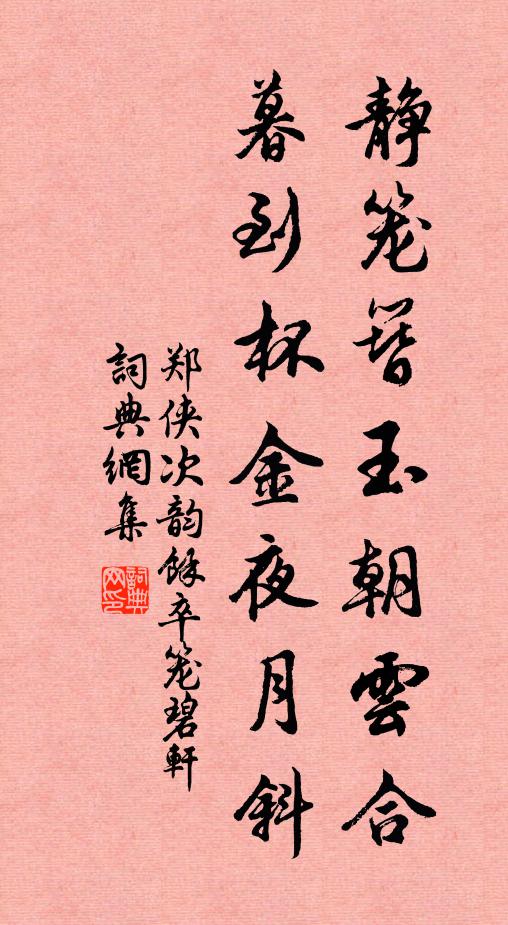 静笼簪玉朝雲合
暮到杯金夜月斜
郑侠次韵餘卒笼碧軒
詞典網集
詞典
网印